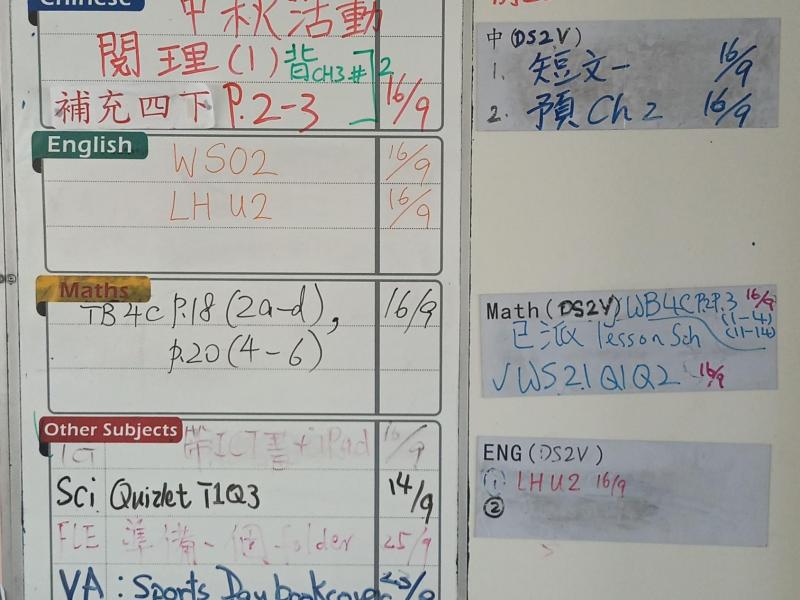 Chinese
中秋活動
閱理(1)背CH3#2
補充四下 P.2-3 16/9
English
WS02 16/9
LH U2 16/9
Maths
TB4C P.18 (2a-d), 16/9
p.20 (4-6)
Other Subjects
ICT 帶ICT書+iPad 16/9
Sci Quizlet T1Q3 14/9
FLE 準備一個folder 25/9
VA : Sports Day bookcover 23/9
中 (DS2V)
1. 短文一 16/9
2. 預 Ch 2 16/9
Math (DS2V) WB4C P.2,P.3 16/9
(1-4)
已派 lesson Sch (11-14)
√WS 2.1 Q1Q2 16/9
ENG (DS2V)
① LH U2 16/9
②